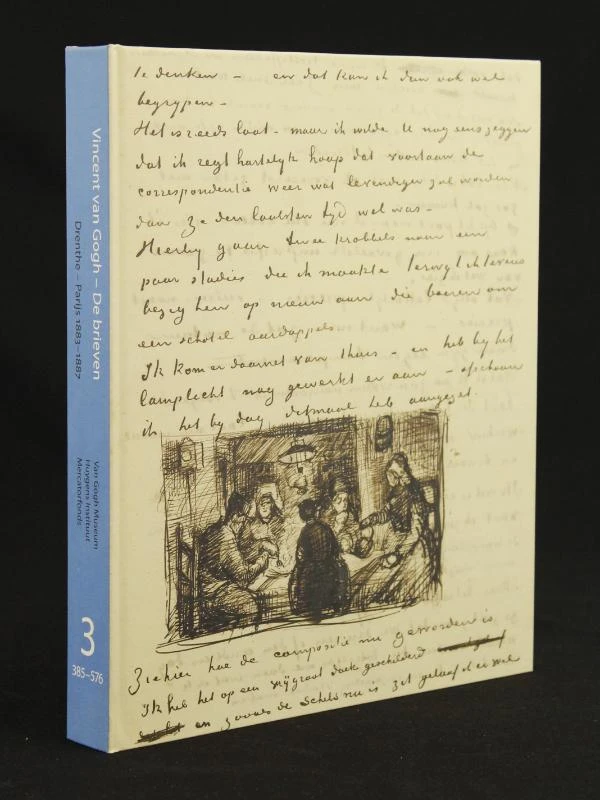 Vincent van Gogh – De brieven
Drenthe – Parijs 1883–1887
Van Gogh Museum
Huygens Instituut
Mercatorfonds
3
385–576
te denken – en dat kan ik dan ook wel
begrypen –
Het is reeds laat – maar ik wilde U nog eens zeggen
dat ik regt hartelyk hoop dat voortaan de
correspondentie weer wat levendiger zal worden
dan ze den laatsten tyd wel was –
Hierby gaan twee krabbels naar een
paar studies die ik maakte terwyl ik tevens
bezig ben op nieuw aan die boeren om
een schotel aardappels.
Ik kom er daarnet van thuis – en heb by het
lamplicht nog gewerkt er aan – ofschoon
ik het by dag ditmaal heb aangezet.
Ziehier hoe de compositie nu geworden is
Ik heb het op een vrij groot doek geschilderd
en zooals de schets nu is zit geloof ik er wel